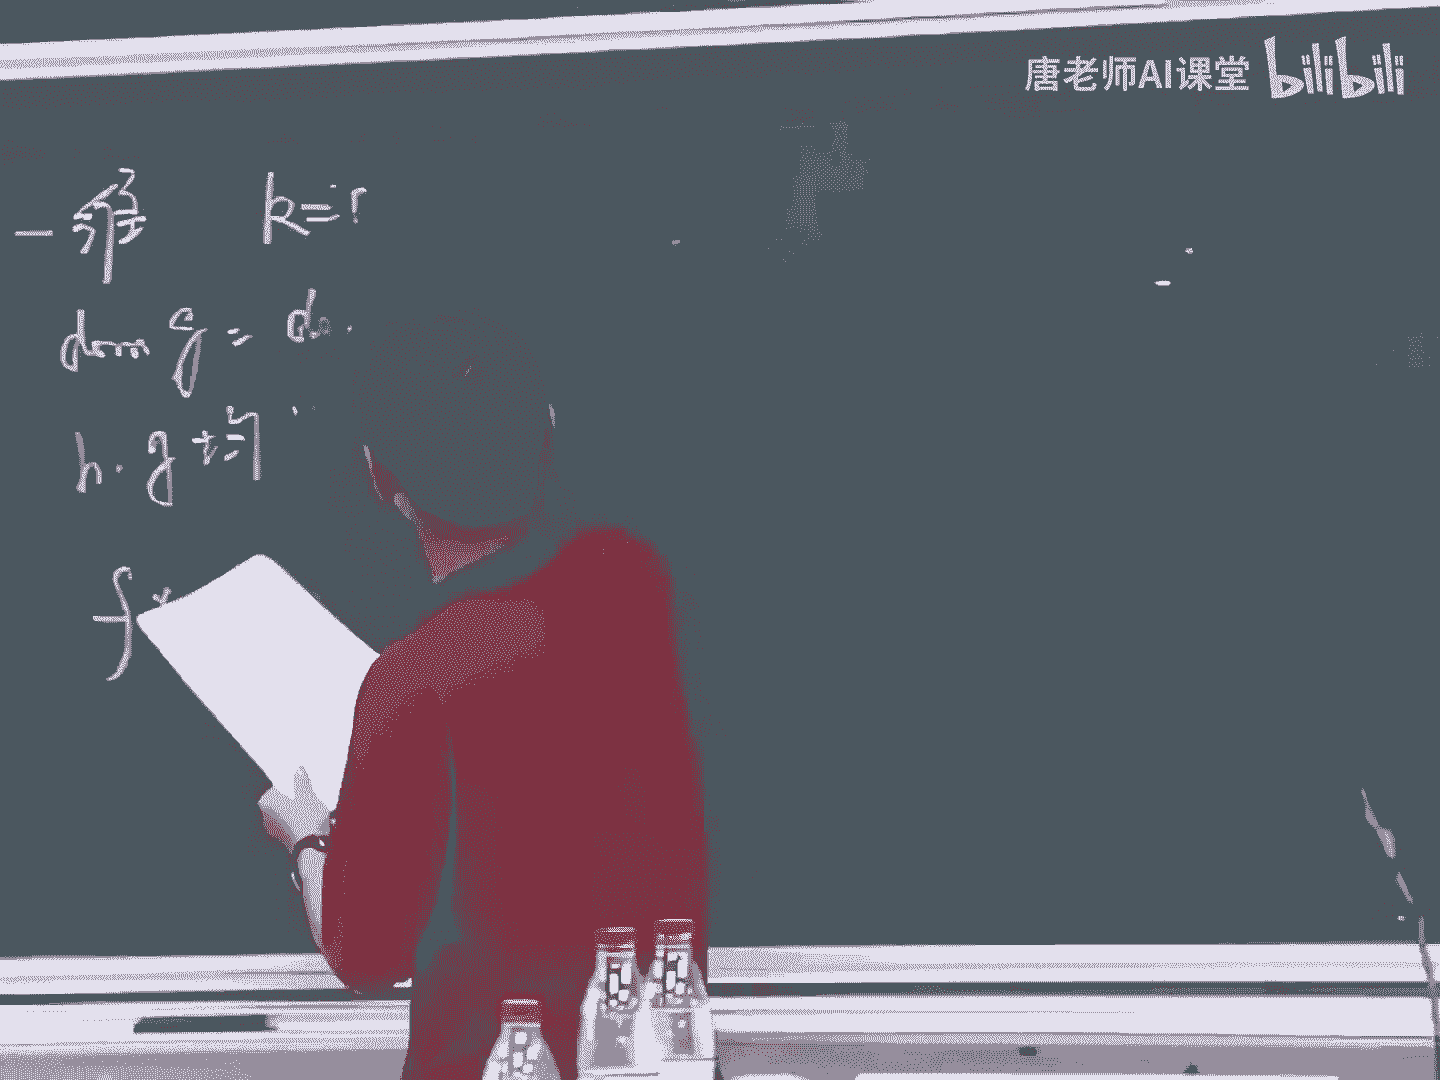 唐老师AI课堂 bilibili
一维 k=
dom g = do
h. g 均
f